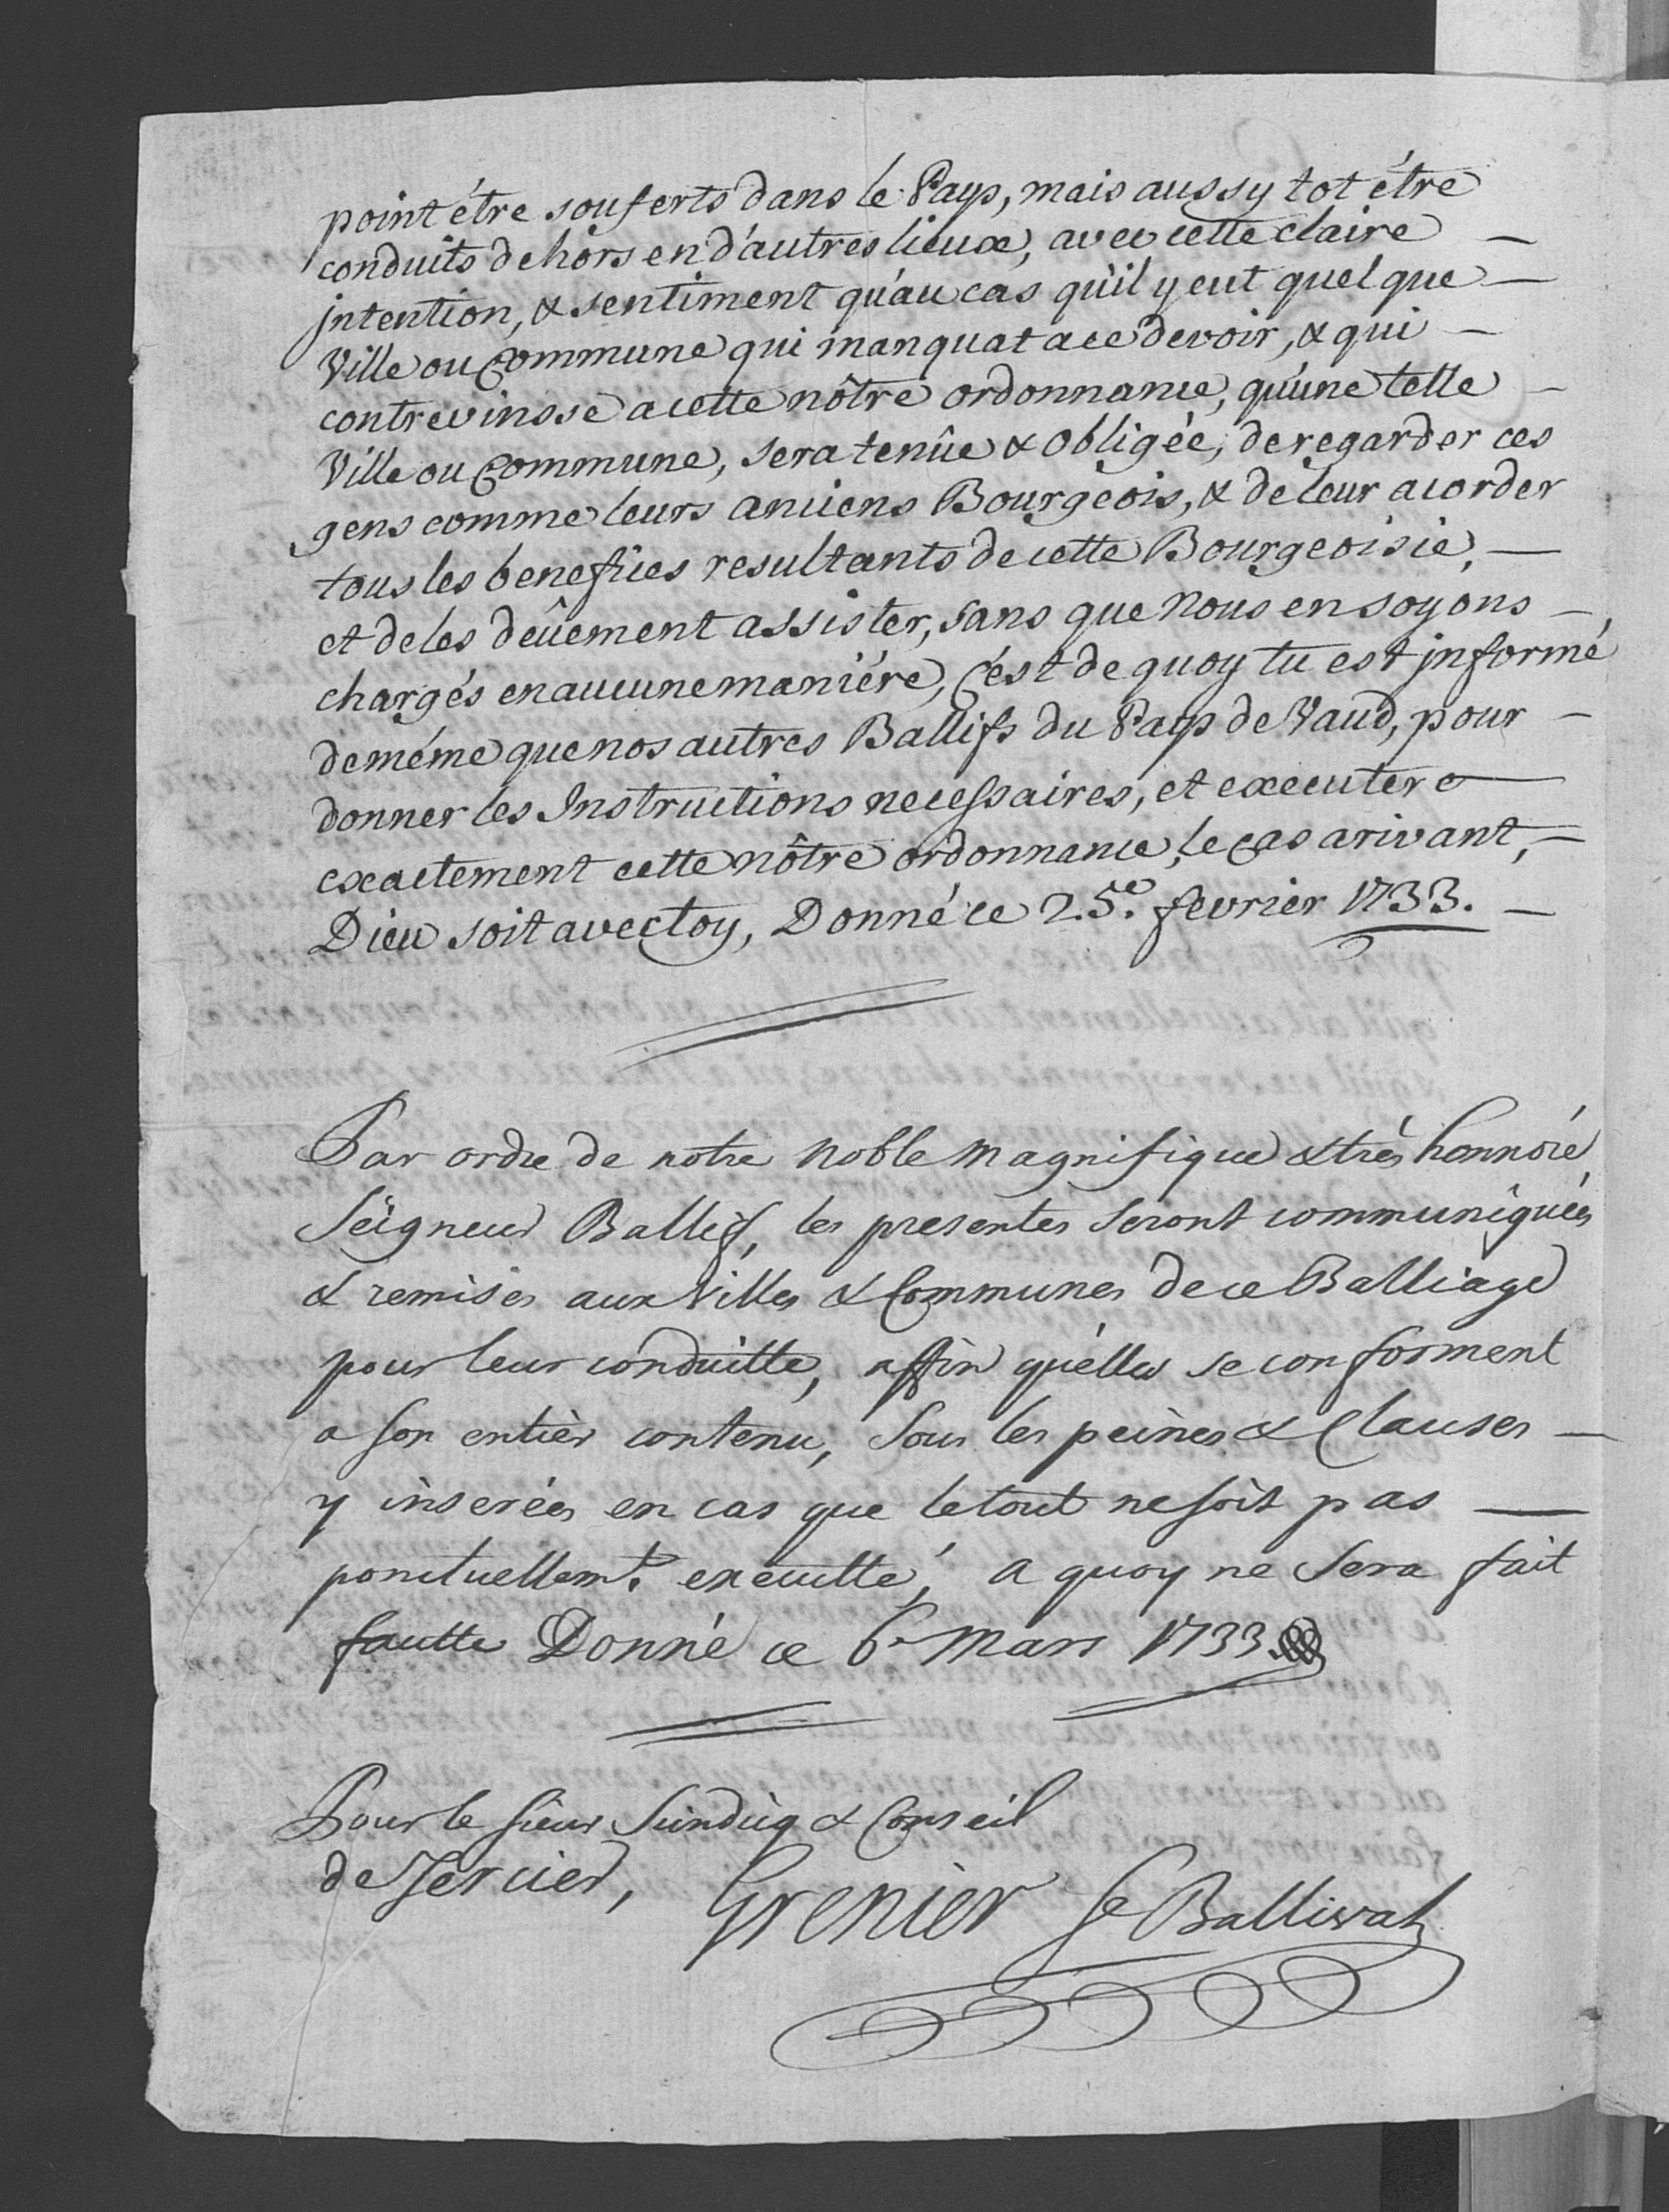 point être souferts dans le Pays, mais aussy tot être
conduits dehors en d'autres lieux, avec cette claire —
jntention, & sentiment qu'au cas qu'il y eut quelque —
Ville ou Commune qui manquat a ce devoir, & qui —
contrevinsse a cette nôtre ordonnance, qu'une telle —
Ville ou Commune, sera tenûe & obligée, de regarder ces
gens comme leurs anciens Bourgeois, & de leur acorder
tous les benefices resultants de cette Bourgeoisie, —
et de les deûement assister, sans que Nous en soyons —
chargés en aucune maniére, c'est de quoy tu est jnformé
de méme que nos autres Ballifs du Pays de Vaud, pour —
donner les Instructions necessaires, et executer
exactement cette nôtre ordonnance, le cas arivant, —
Dieu soit avec toy, Donné ce 25e. fevrier 1733. —
Par ordre de notre Noble Magnifique & très honnoré
Seigneur Ballif, les presentes seront communiquées
& remises aux Villes & Communes de ce Balliage
pour leur conduitte, affin qu'elles se conforment
a son entier contenu, sous les peines & Clauses —
y inserées en cas que le tout ne soit pas —
ponctuellemt. executté, a quoy ne sera fait
fautte Donné ce 6e Mars 1733.
Pour le sieur Sindiq & Conseil
de Jercier,
Grenier Se Ballival